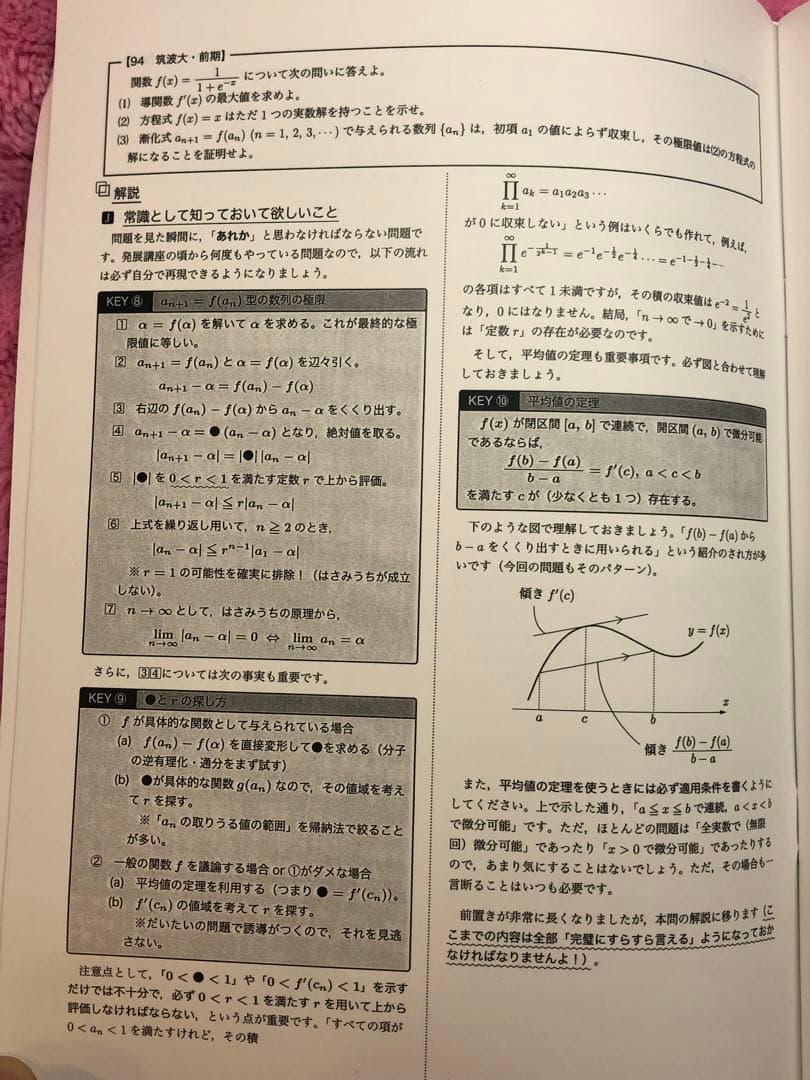 【94 筑波大・前期】
関数 f(x) = 1/(1+e^{-x}) について次の問いに答えよ。
(1) 導関数 f′(x) の最大値を求めよ。
(2) 方程式 f(x) = x はただ1つの実数解を持つことを示せ。
(3) 漸化式 a_{n+1} = f(a_n) (n = 1, 2, 3, ···) で与えられる数列 {a_n} は，初項 a_1 の値によらず収束し，その極限値は(2)の方程式の
解になることを証明せよ。
解説
J 常識として知っておいて欲しいこと
問題を見た瞬間に，「あれか」と思わなければならない問題で
す。発展講座の頃から何度もやっている問題なので，以下の流れ
は必ず自分で再現できるようになりましょう。
KEY ⑧ a_{n+1} = f(a_n) 型の数列の極限
1 α = f(α) を解いて α を求める。これが最終的な極
限値に等しい。
2 a_{n+1} = f(a_n) と α = f(α) を辺々引く。
a_{n+1} − α = f(a_n) − f(α)
3 右辺の f(a_n) − f(α) から a_n − α をくくり出す。
4 a_{n+1} − α = ●(a_n − α) となり，絶対値を取る。
|a_{n+1} − α| = |●||a_n − α|
5 |●| を 0 < r < 1 を満たす定数 r で上から評価。
|a_{n+1} − α| ≦ r|a_n − α|
6 上式を繰り返し用いて，n ≧ 2 のとき，
|a_n − α| ≦ r^{n−1}|a_1 − α|
※ r = 1 の可能性を確実に排除！（はさみうちが成立
しない）。
7 n → ∞ として，はさみうちの原理から，
lim_{n→∞} |a_n − α| = 0 ⇔ lim_{n→∞} a_n = α
さらに，34については次の事実も重要です。
KEY ⑨ ●と r の探し方
① f が具体的な関数として与えられている場合
(a) f(a_n) − f(α) を直接変形して●を求める（分子
の逆有理化・通分をまず試す）
(b) ●が具体的な関数 g(a_n) なので，その値域を考え
て r を探す。
※「a_n の取りうる値の範囲」を帰納法で絞ること
が多い。
② 一般の関数 f を議論する場合 or ①がダメな場合
(a) 平均値の定理を利用する（つまり ● = f′(c_n)）。
(b) f′(c_n) の値域を考えて r を探す。
※だいたいの問題で誘導がつくので，それを見逃
さない。
注意点として，「0 < ● < 1」や「0 < f′(c_n) < 1」を示す
だけでは不十分で，必ず 0 < r < 1 を満たす r を用いて上から
評価しなければならない，という点が重要です。「すべての項が
0 < a_n < 1 を満たすけれど，その積
∏_{k=1}^{∞} a_k = a_1a_2a_3 ···
が 0 に収束しない」という例はいくらでも作れて，例えば，
∏_{k=1}^{∞} e^{−1/2^{k−1}} = e^{−1}e^{−1/2}e^{−1/4} ··· = e^{−1−1/2−1/4−···}
の各項はすべて 1 未満ですが，その積の収束値は e^{−2} = 1/e^2 と
なり，0 にはなりません。結局，「n → ∞ で → 0」を示すために
は「定数 r」の存在が必要なのです。
そして，平均値の定理も重要事項です。必ず図と合わせて理解
しておきましょう。
KEY ⑩ 平均値の定理
f(x) が閉区間 [a, b] で連続で，開区間 (a, b) で微分可能
であるならば，
(f(b) − f(a))/(b − a) = f′(c), a < c < b
を満たす c が（少なくとも1つ）存在する。
下のような図で理解しておきましょう。「f(b) − f(a) から
b − a をくくり出すときに用いられる」という紹介のされ方が多
いです（今回の問題もそのパターン）。
傾き f′(c)
y = f(x)
x
a c b
傾き (f(b) − f(a))/(b − a)
また，平均値の定理を使うときには必ず適用条件を書くように
してください。上で示した通り，「a ≦ x ≦ b で連続，a < x < b
で微分可能」です。ただ，ほとんどの問題は「全実数で（無限
回）微分可能」であったり「x > 0 で微分可能」であったりする
ので，あまり気にすることはないでしょう。ただ，その場合も一
言断ることはいつも必要です。
前置きが非常に長くなりましたが，本問の解説に移ります（こ
こまでの内容は全部「完璧にすらすら言える」ようになっておか
なければなりませんよ！）。